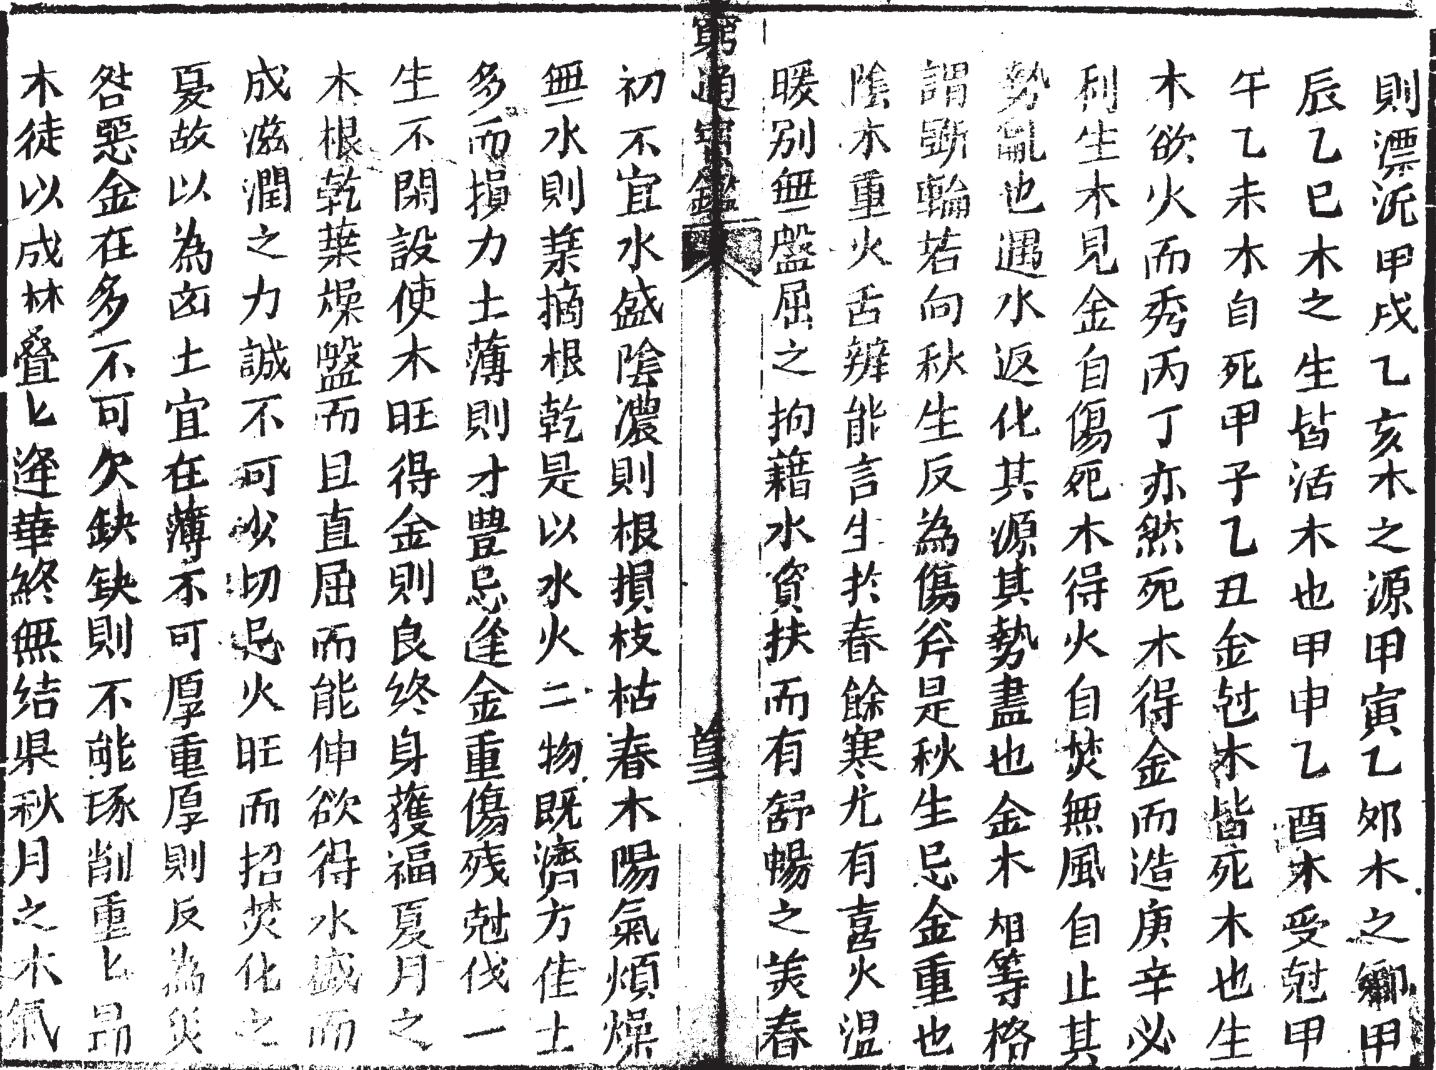 則漂沅甲戌乙亥木之源甲寅乙夘木之鄉甲
辰乙巳木之生皆活木也甲申乙酉木受尅甲
午乙未木自死甲子乙丑金尅木皆死木也生
木欲火而秀丙丁亦然死木得金而造庚辛必
利生木見金自傷死木得火自焚無風自止其
勢亂也遇水返化其源其勢盡也金木相等格
謂斲輪若向秋生反為傷斧是秋生忌金重也
陰木重火舌辨能言生於春餘寒尤有喜火溫
暖別無盤屈之拘藉水資扶而有舒暢之美春
窮通寶鑑
初不宜水盛陰濃則根損枝枯春木陽氣煩燥
無水則葉摘根乾是以水火二物既濟方佳土
多而損力土薄則才豊忌逢金重傷殘尅伐一
生不閑設使木旺得金則良終身獲福夏月之
木根乾葉燥盤而且直屈而能伸欲得水盛而
成滋潤之力誠不可少切忌火旺而招焚化之
憂故以為凶土宜在薄不可厚重厚則反為災
咎惡金在多不可欠缺缺則不能琢削重匕昂
木徒以成林叠匕逢華終無结果秋月之木氣